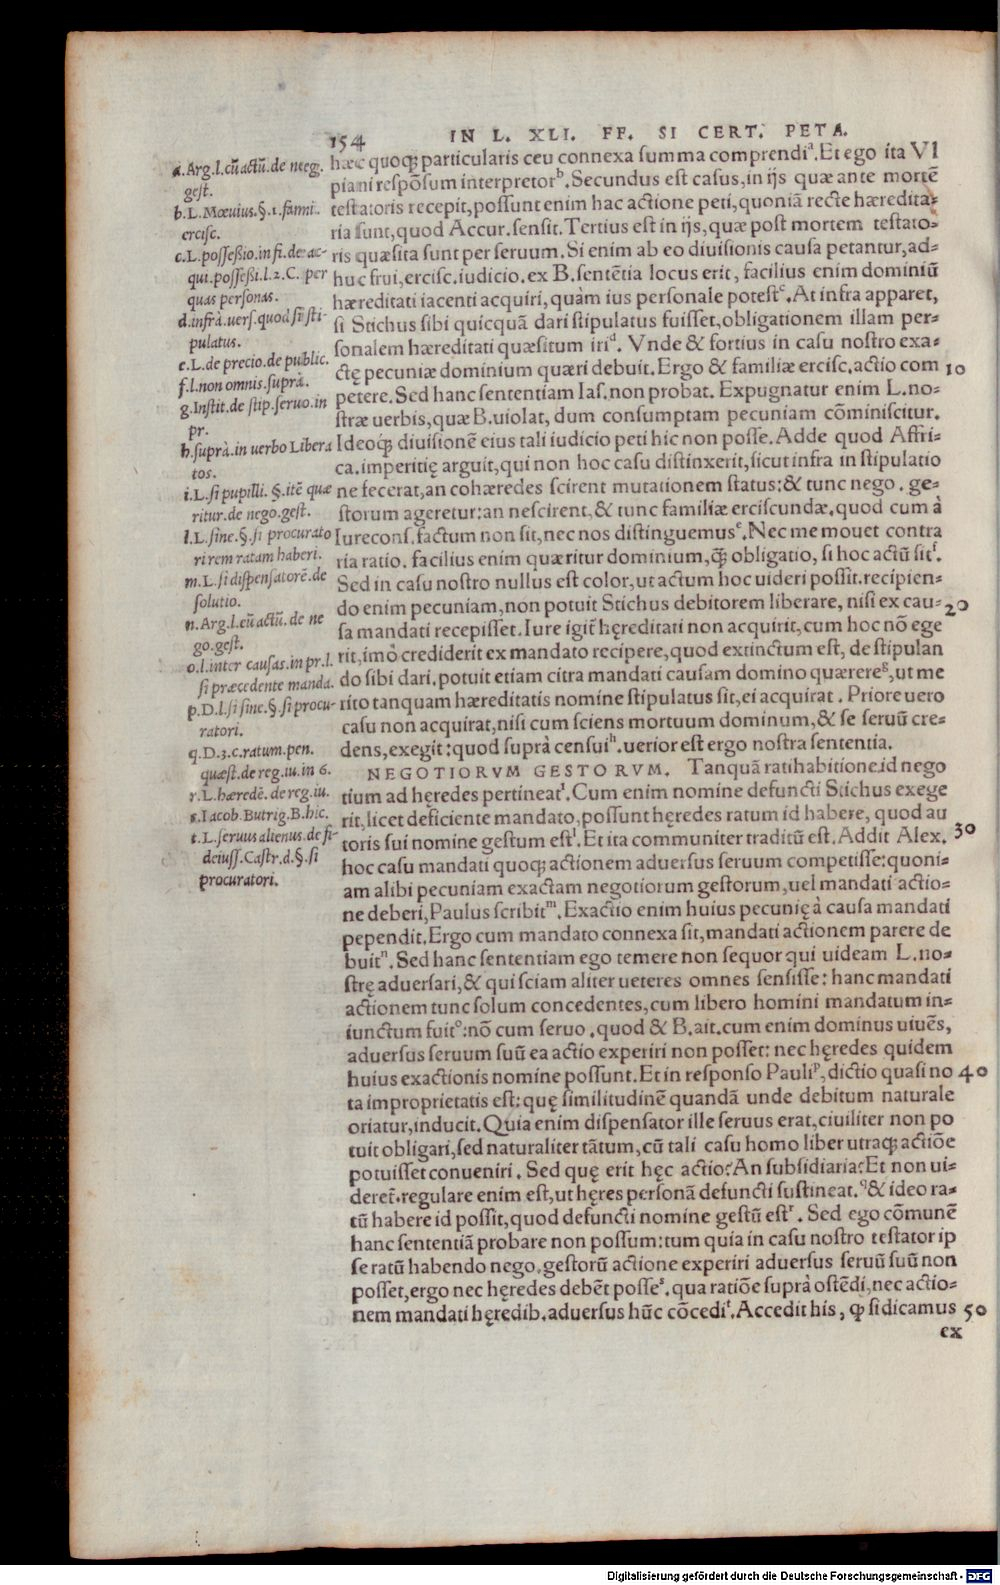 154 IN L. XLI. FF. SI CERT. PETA.
hæc quoq; particularis ceu connexa summa comprendiᵃ. Et ego ita Vl
piani respõsum interpretorᵇ. Secundus est casus, in ijs quæ ante mortẽ
testatoris recepit, possunt enim hac actione peti, quoniã recte hæredita⸗
ria sunt, quod Accur. sensit. Tertius est in ijs, quæ post mortem testato⸗
ris quæsita sunt per seruum. Si enim ab eo diuisionis causa petantur, ad⸗
huc frui, ercisc. iudicio. ex B. sentẽtia locus erit, facilius enim dominiũ
hæreditati iacenti acquiri, quàm ius personale potestᶜ. At infra apparet,
si Stichus sibi quicquã dari stipulatus fuisset, obligationem illam per⸗
sonalem hæreditati quæsitum iriᵈ. Vnde & fortius in casu nostro exa⸗
ctę pecuniæ dominium quæri debuit. Ergo & familiæ ercisc. actio com 10
petere. Sed hanc sententiam Ias. non probat. Expugnatur enim L. no⸗
stræ uerbis, quæ B. uiolat, dum consumptam pecuniam cõminiscitur.
Ideoq; diuisionẽ eius tali iudicio peti hic non posse. Adde quod Affri⸗
ca. imperitię arguit, qui non hoc casu distinxerit, sicut infra in stipulatio
ne fecerat, an cohæredes scirent mutationem status: & tunc nego. ge⸗
storum ageretur: an nescirent, & tunc familiæ erciscundæ, quod cum à
Iurecons. factum non sit, nec nos distinguemusᵉ. Nec me mouet contra
ria ratio. facilius enim quæritur dominium, q̃ obligatio, si hoc actũ sitᶠ.
Sed in casu nostro nullus est color, ut actum hoc uideri possit. recipien⸗
do enim pecuniam, non potuit Stichus debitorem liberare, nisi ex cau⸗ 20
sa mandati recepisset. Iure igit̃ hęreditati non acquirit, cum hoc nõ ege
rit, imò crediderit ex mandato recipere, quod extinctum est, de stipulan
do sibi dari. potuit etiam citra mandati causam domino quærereᵍ, ut me
rito tanquam hæreditatis nomine stipulatus sit, ei acquirat. Priore uero
casu non acquirat, nisi cum sciens mortuum dominum, & se seruũ cre⸗
dens, exegit: quod suprà censuiʰ. uerior est ergo nostra sententia.
NEGOTIORVM GESTORVM. Tanquã ratihabitione id nego
tium ad hęredes pertineatⁱ. Cum enim nomine defuncti Stichus exege
rit, licet deficiente mandato, possunt hęredes ratum id habere, quod au
toris sui nomine gestum estˡ. Et ita communiter traditũ est. Addit Alex. 30
hoc casu mandati quoq; actionem aduersus seruum competisse: quoni⸗
am alibi pecuniam exactam negotiorum gestorum, uel mandati actio⸗
ne deberi, Paulus scribitᵐ. Exactio enim huius pecunię à causa mandati
pependit. Ergo cum mandato connexa sit, mandati actionem parere de
buitⁿ. Sed hanc sententiam ego temere non sequor qui uideam L. no⸗
strę aduersari, & qui sciam aliter ueteres omnes sensisse: hanc mandati
actionem tunc solum concedentes, cum libero homini mandatum in⸗
iunctum fuitᵒ: nõ cum seruo. quod & B. ait. cum enim dominus uiuẽs,
aduersus seruum suũ ea actio experiri non posset: nec hęredes quidem
huius exactionis nomine possunt. Et in responso Pauliᵖ, dictio quasi no 40
ta improprietatis est: quę similitudinẽ quandã unde debitum naturale
oriatur, inducit. Quia enim dispensator ille seruus erat, ciuiliter non po
tuit obligari, sed naturaliter tãtum, cũ tali casu homo liber utraq; actiõe
potuisset conueniri. Sed quę erit hęc actio? An subsidiaria? Et non ui⸗
deret̃. regulare enim est, ut hęres personã defuncti sustineat.ᑫ & ideo ra⸗
tũ habere id possit, quod defuncti nomine gestũ estʳ. Sed ego cõmunẽ
hanc sententiã probare non possum: tum quia in casu nostro testator ip
se ratũ habendo nego. gestorũ actione experiri aduersus seruũ suũ non
posset, ergo nec hęredes debẽt posseˢ. qua ratiõe suprà ostẽdi, nec actio⸗
nem mandati hęredib. aduersus hũc cõcediᵗ. Accedit his, ꝙ si dicamus 50
ex
a. Arg. l. cũ actũ. de neeg.
gest.
b. L. Mœuius. §. 1. fami.
ercisc.
c. L. possessio. in fi. de ac⸗
qui. possessi. l. 2. C. per
quas personas.
d. infrà. uers. quod si sti⸗
pulatus.
e. L. de precio. de public.
f. l. non omnis. suprà.
g. Instit. de stip. seruo. in
pr.
h. suprà. in uerbo Libera
tos.
i. L. si pupilli. §. itẽ quæ
ritur. de nego. gest.
l. L. sine. §. si procurato
ri rem ratam haberi.
m. L. si dispensatorẽ. de
solutio.
n. Arg. l. cũ actũ. de ne
go. gest.
o. l. inter causas. in pr. l.
si præcedente manda.
p. D. l. si sine. §. si procu⸗
ratori.
q. D. 3. c. ratum. pen.
quæst. de reg. iu. in 6.
r. L. hæredẽ. de reg. iu.
s. Iacob. Butrig. B. hic.
t. L. seruus alienus. de fi⸗
deiuss. Castr. d. §. si
procuratori.
Digitalisierung gefördert durch die Deutsche Forschungsgemeinschaft - DFG